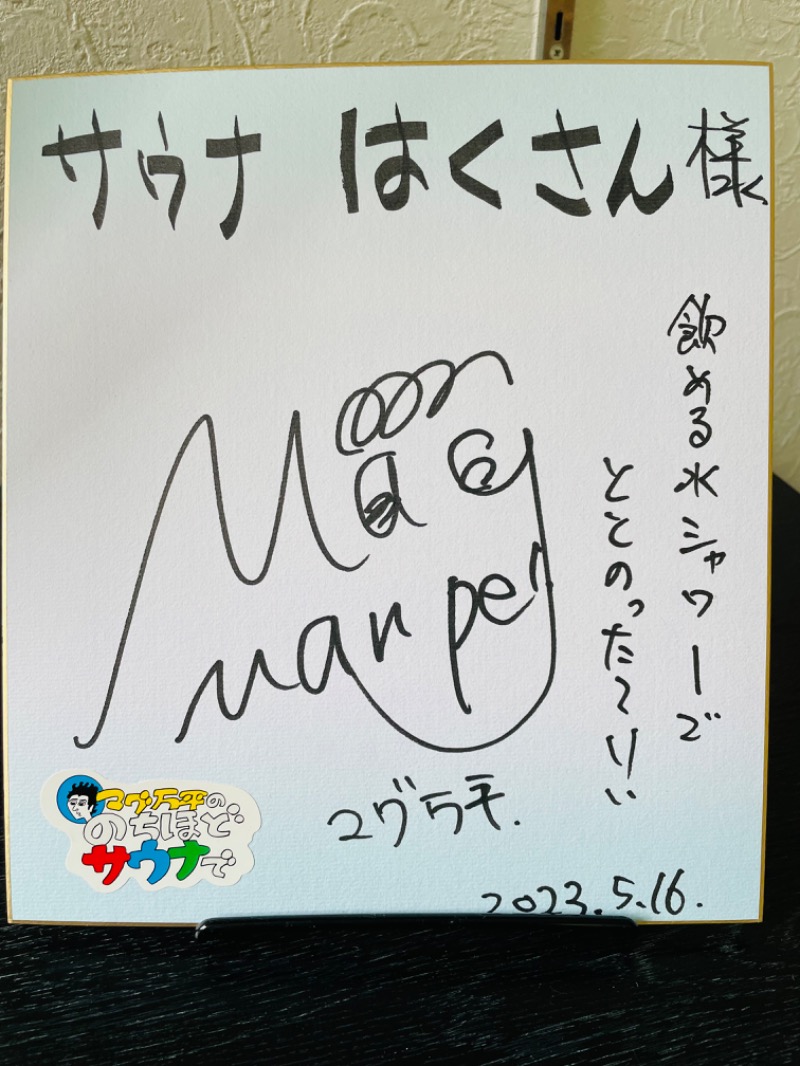 サウナ はくさん様
飲める水シャワーで
ととのった〜りぃ
Mag
Manpei
マグ万平.
マグ万平の
のちほど
サウナで
2023.5.16.